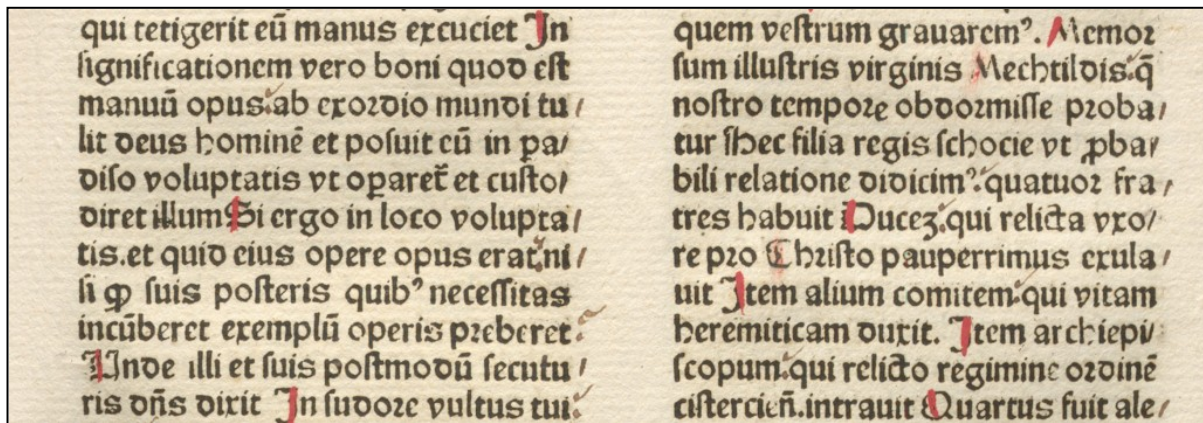 qui tetigerit eū manus excuciet In
ſignificationem vero boni quod eſt
manuū opus: ab exordio mundi tu/
lit deus hominē et poſuit eū in pa/
diſo voluptatis vt oꝑaret̄ et cuſto/
diret illum Si ergo in loco volupta/
tis. et quid eius opere opus erat: ni/
ſi qꝫ ſuis poſteris quibꝰ neceſſitas
incūberet exemplū operis preberet:
Unde illi et ſuis poſtmodū ſecutu/
ris dñs dixit In ſudore vultus tui:
quem veſtrum grauaremꝰ. Memor
ſum illuſtris virginis Mechtildis: q̄
noſtro tempore obdormiſſe proba/
tur ſhec filia regis ſchocie vt ꝓba/
bili relatione didicimꝰ: quatuor fra/
tres habuit Ducez: qui relicta vxo/
re pro Chriſto pauperrimus exula/
uit Item alium comitem: qui vitam
heremiticam duxit. Item archiepi/
ſcopum: qui relicto regimine ordinē
ciſtercieñ. intrauit Quartus fuit ale/